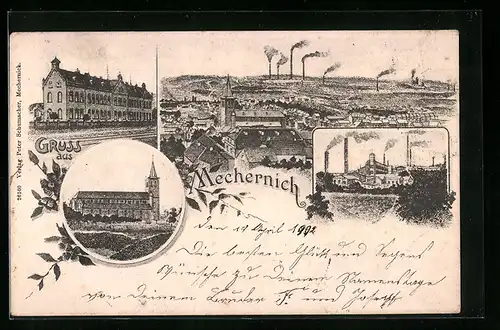 26160 Verlag Peter Schumacher, Mechernich.
GRUSS
aus
Mechernich
den 19 April 1902
Die besten Glück und Segens
Wünsche zu deinem Namenstage
von deinem Bruder Fr. und Joseph